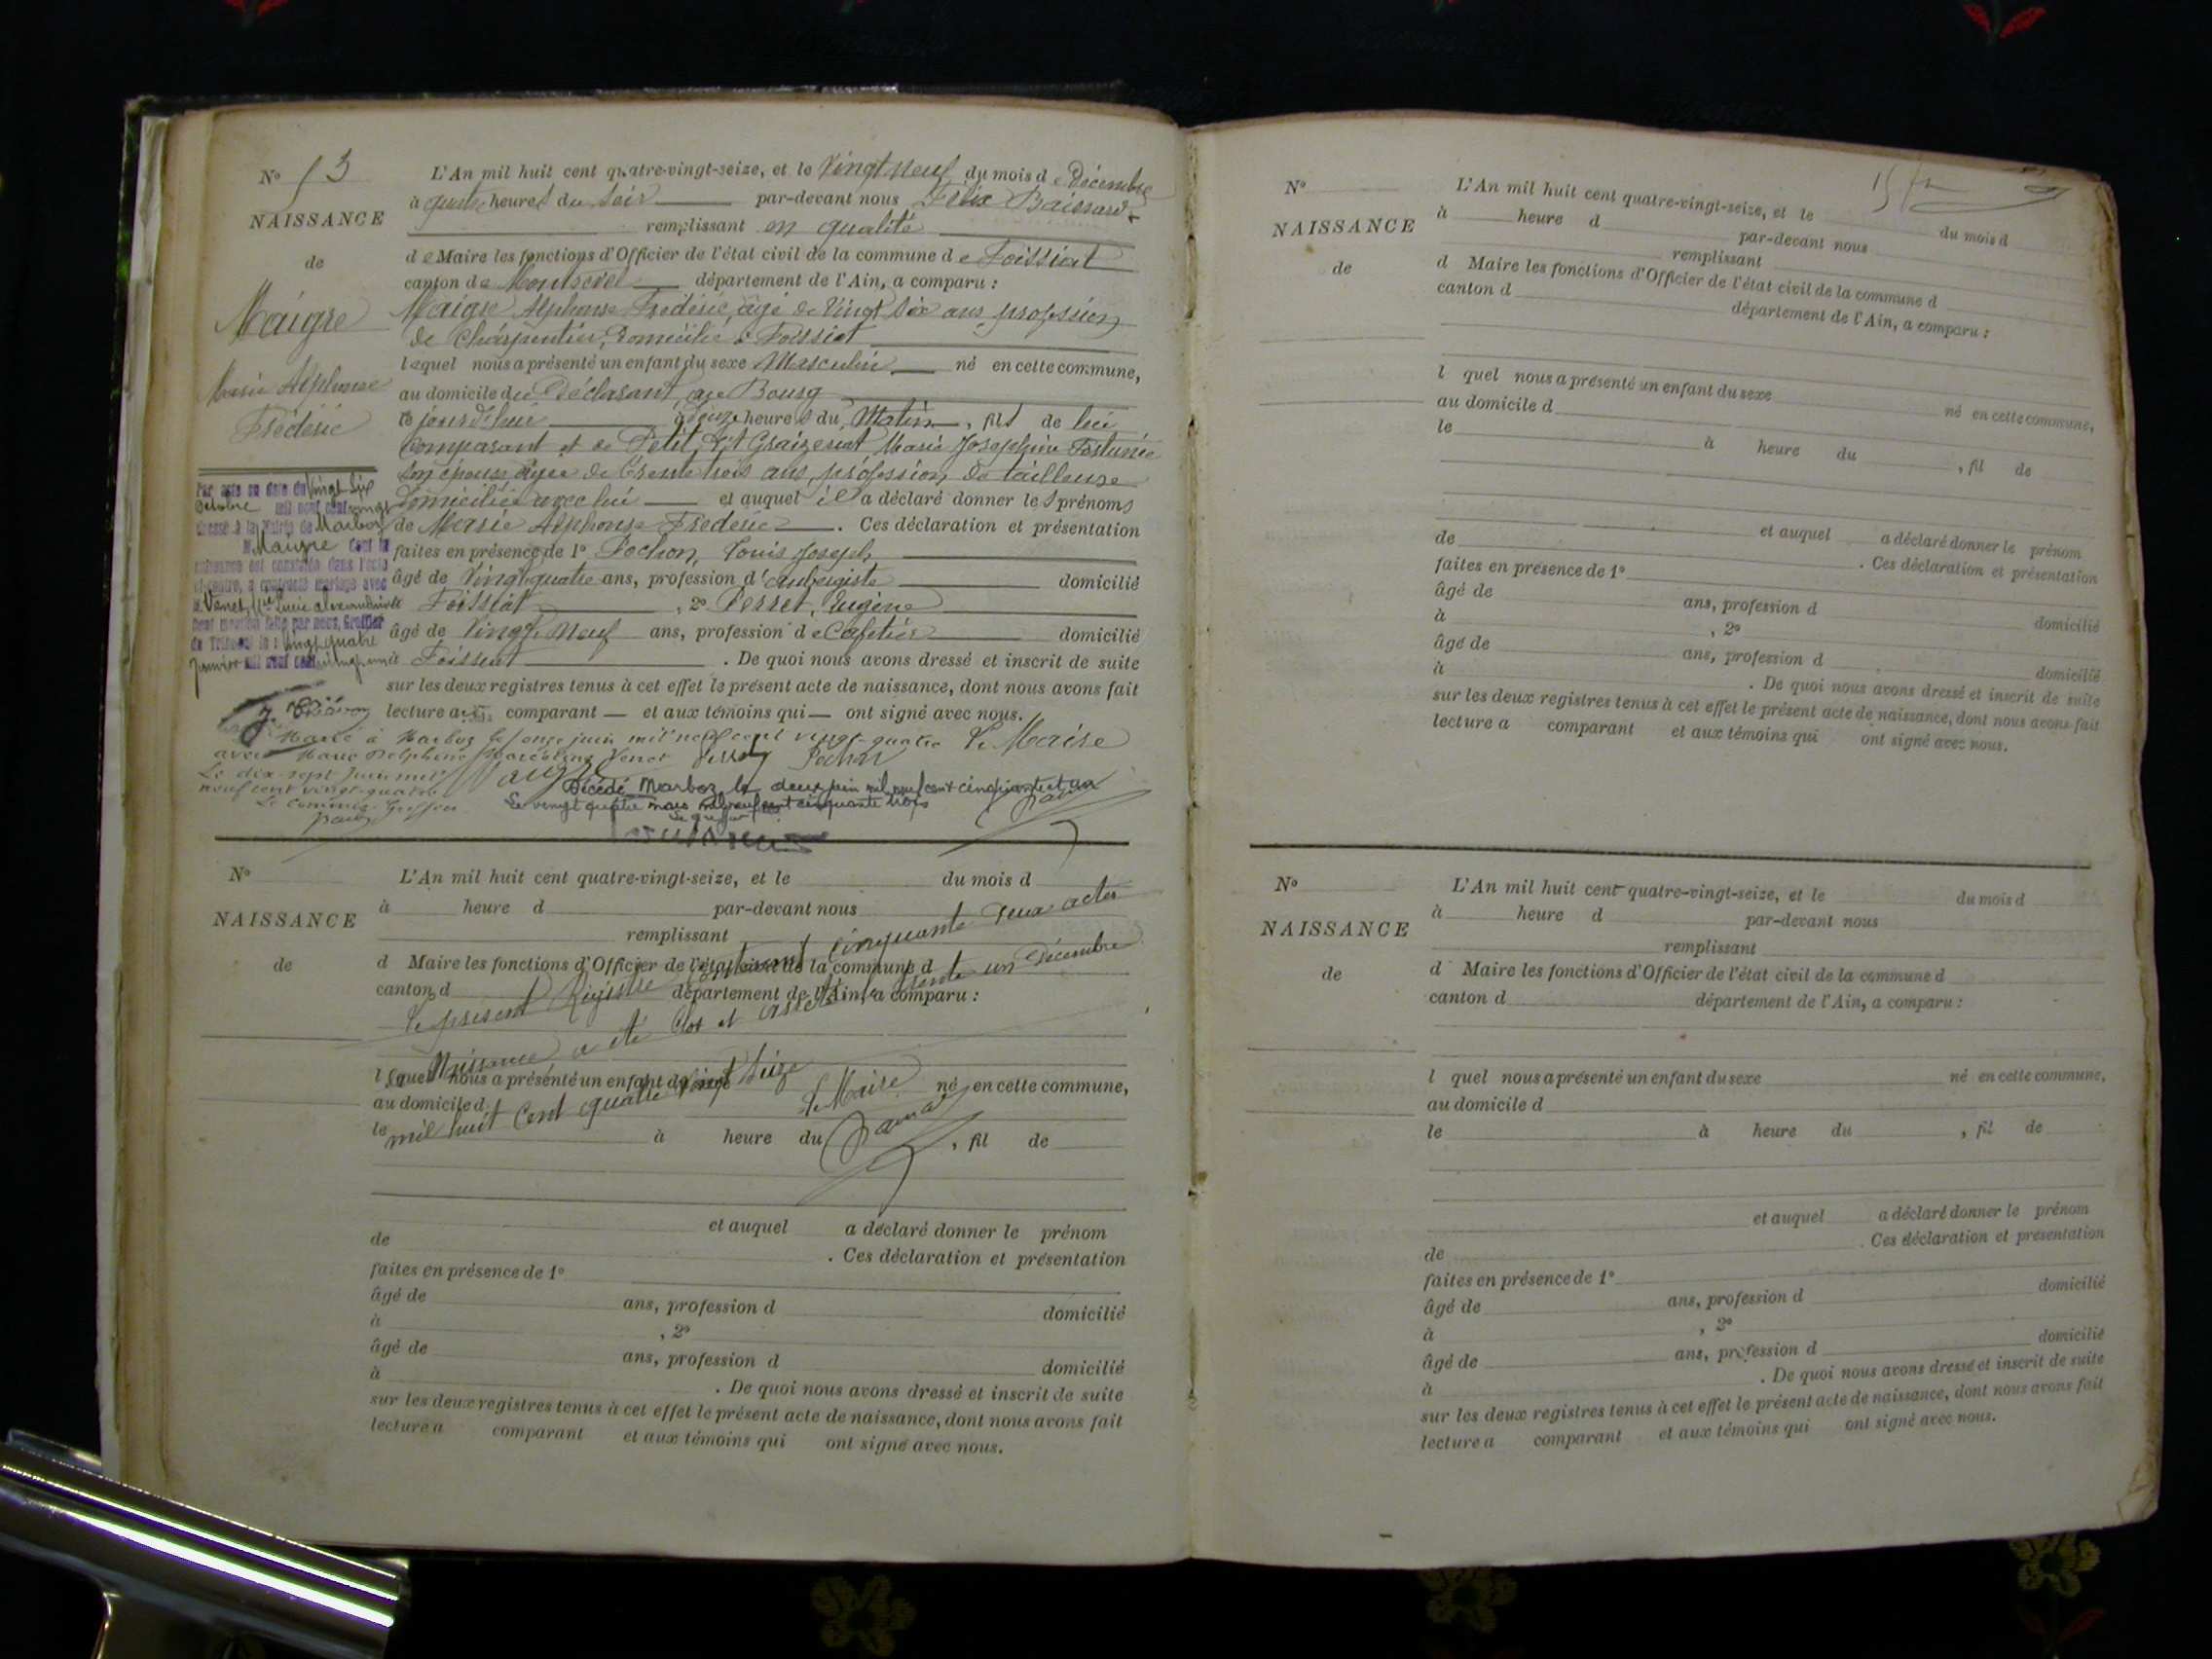 No 53
NAISSANCE
de
Maigre
Marie Alphonse
Frédéric
L'An mil huit cent quatre-vingt-seize, et le Vingt neuf du mois de Décembre
à quatre heures du Soir par-devant nous Félix
remplissant en qualité
de Maire les fonctions d'Officier de l'état civil de la commune de Foissiat
canton de Montrevel département de l'Ain, a comparu :
Maigre Alphonse Frédéric, âgé de Vingt six ans profession
de Charpentier, Domicilié à Foissiat
lequel nous a présenté un enfant du sexe Masculin né en cette commune,
au domicile du Déclarant, au Bourg
ce jourd'hui à heures du Matin, fils de lui
Comparant et de Petit, dit Marie Joséphine
son épouse âgée de trente trois ans, profession de tailleuse
Domiciliée avec lui et auquel il a déclaré donner les prénoms
de Marie Alphonse Frédéric. Ces déclaration et présentation
faites en présence de 1o Pochon, Louis Joseph
âgé de Vingt quatre ans, profession d'aubergiste domicilié
à Foissiat, 2o Perret, Eugène
âgé de Vingt Neuf ans, profession de Cafetier domicilié
à Foissiat. De quoi nous avons dressé et inscrit de suite
sur les deux registres tenus à cet effet le présent acte de naissance, dont nous avons fait
lecture au comparant — et aux témoins qui — ont signé avec nous.
Par acte en date du Vingt six
Octobre mil neuf cent vingt
dressé à la Mairie de Marboz
Maigre dont la
naissance est constatée dans l'acte
ci-contre, a contracté mariage avec
Venet, Lucie Alexandrine
Dont mention faite par nous, Greffier
du Tribunal le vingt quatre
Janvier mil neuf cent vingt un
Marié à Marboz le onze juin mil neuf cent vingt-quatre Le Maire
avec Marie Delphine Marceline Venet Perret Pochon
Le dix-sept Juin mil
neuf cent vingt-quatre
Le Commis-Greffier
Maigre
Décédé Marboz le deux juin mil neuf cent cinquante et un
Le vingt quatre mars mil neuf cent cinquante trois
Le greffier
No
NAISSANCE
de
L'An mil huit cent quatre-vingt-seize, et le du mois d
à heure d par-devant nous
remplissant
d Maire les fonctions d'Officier de l'état civil de la commune d
canton d département de l'Ain, a comparu :
Le présent Registre contenant Cinquante deux actes
de Naissance a été Clos et arrêté le trente un Décembre
mil huit Cent quatre Vingt Seize
Le Maire
l quel nous a présenté un enfant du sexe né en cette commune,
au domicile d
le à heure du , fil de
et auquel a déclaré donner le prénom
de . Ces déclaration et présentation
faites en présence de 1o
âgé de ans, profession d domicilié
à , 2o
âgé de ans, profession d domicilié
à . De quoi nous avons dressé et inscrit de suite
sur les deux registres tenus à cet effet le présent acte de naissance, dont nous avons fait
lecture a comparant et aux témoins qui ont signé avec nous.
No
NAISSANCE
de
L'An mil huit cent quatre-vingt-seize, et le du mois d
à heure d par-devant nous
remplissant
d Maire les fonctions d'Officier de l'état civil de la commune d
canton d département de l'Ain, a comparu :
l quel nous a présenté un enfant du sexe né en cette commune,
au domicile d
le à heure du , fil de
et auquel a déclaré donner le prénom
de . Ces déclaration et présentation
faites en présence de 1o
âgé de ans, profession d domicilié
à , 2o
âgé de ans, profession d domicilié
à . De quoi nous avons dressé et inscrit de suite
sur les deux registres tenus à cet effet le présent acte de naissance, dont nous avons fait
lecture a comparant et aux témoins qui ont signé avec nous.
No
NAISSANCE
de
L'An mil huit cent quatre-vingt-seize, et le du mois d
à heure d par-devant nous
remplissant
d Maire les fonctions d'Officier de l'état civil de la commune d
canton d département de l'Ain, a comparu :
l quel nous a présenté un enfant du sexe né en cette commune,
au domicile d
le à heure du , fil de
et auquel a déclaré donner le prénom
de . Ces déclaration et présentation
faites en présence de 1o
âgé de ans, profession d domicilié
à , 2o
âgé de ans, profession d domicilié
à . De quoi nous avons dressé et inscrit de suite
sur les deux registres tenus à cet effet le présent acte de naissance, dont nous avons fait
lecture a comparant et aux témoins qui ont signé avec nous.